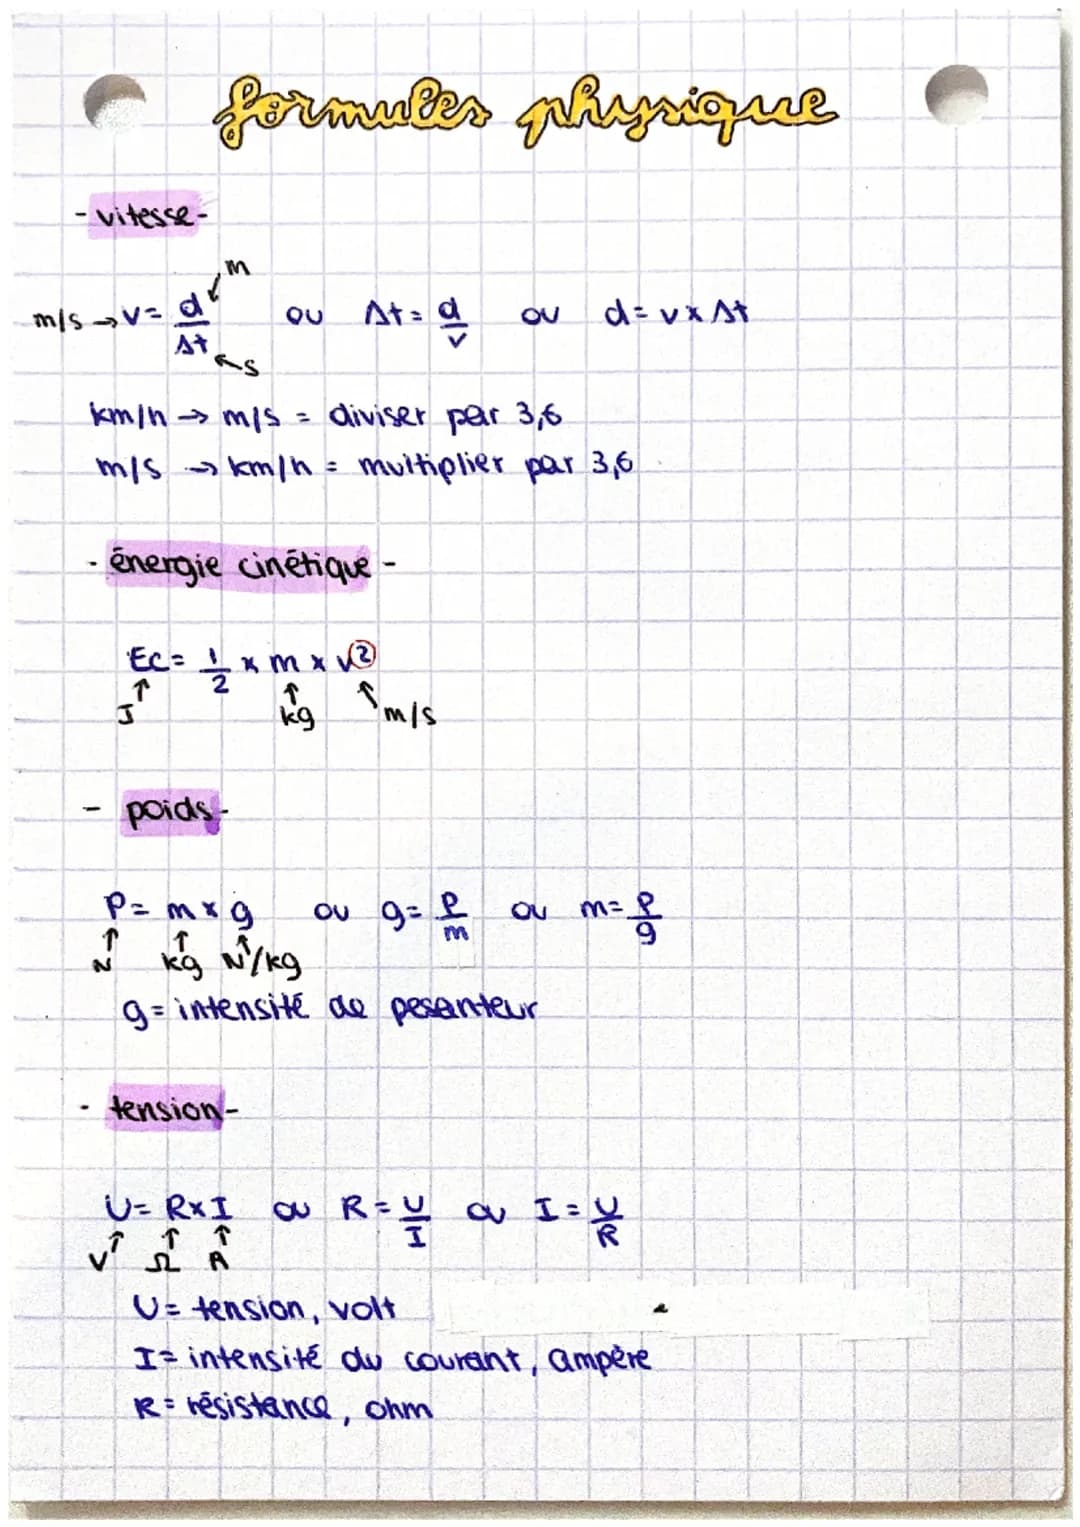 formules physique
- vitesse -
m/s → v = d/Δt ← m ← s ou Δt = d/v ou d = v x Δt
km/h → m/s = diviser par 3,6
m/s → km/h = multiplier par 3,6
- énergie cinétique -
Ec = 1/2 x m x v²
↑ J ↑ kg ↑ m/s
- poids -
P = m x g ou g = P/m ou m = P/g
↑ N ↑ kg ↑ N/kg
g = intensité de pesanteur
- tension -
U = R x I ou R = U/I ou I = U/R
↑ V ↑ Ω ↑ A
U = tension, volt
I = intensité du courant, ampère
R = résistance, ohm